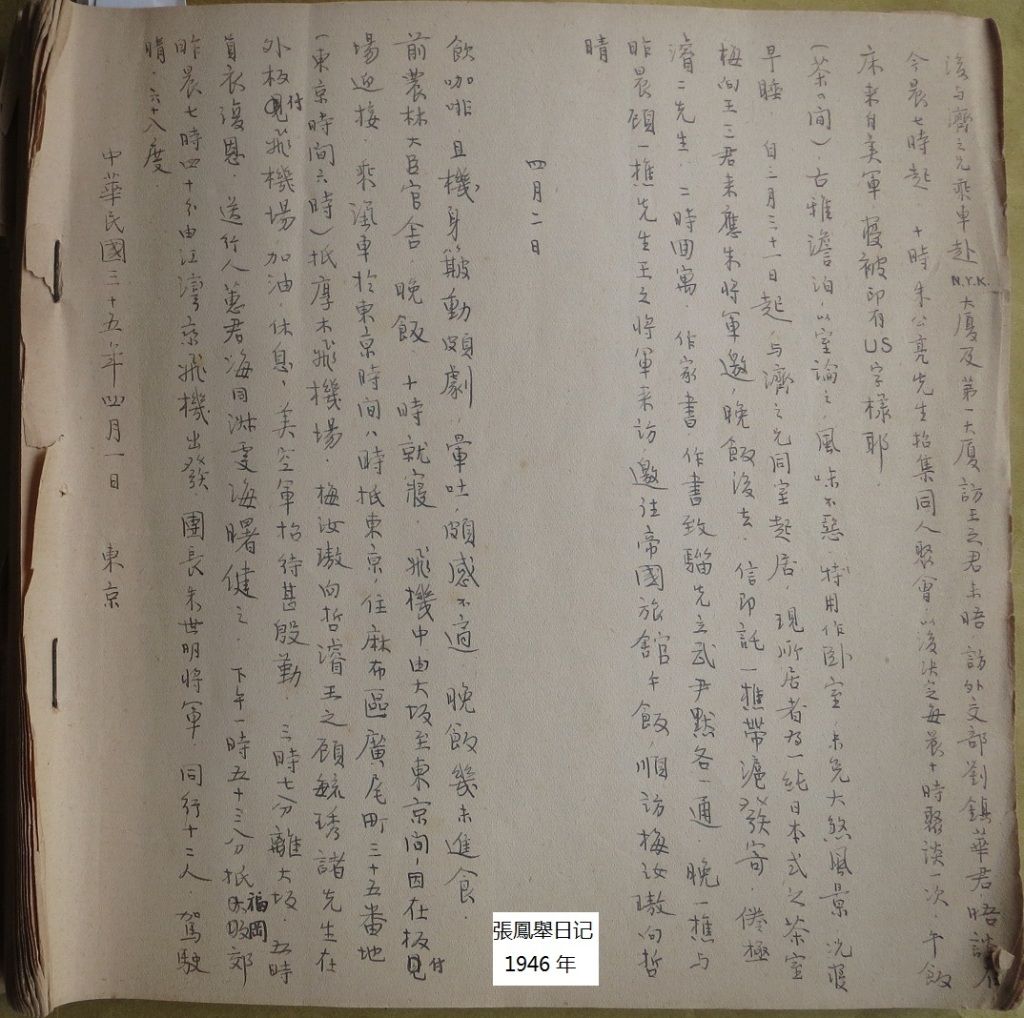 中華民國三十五年四月一日　東京
晴．六十八度．
昨晨七時四十分由江灣乘飛機出發　團長朱世明將軍．同行十二人．駕駛
員衣復恩．送行人蕙君海同淋雯海曙健之．下午一時五十三分抵福岡郊
外板付飛機場．加油．休息．美空軍招待甚殷勤．三時七分離大坂．五時
（東京時間六時）抵厚木飛機場．梅汝璈向哲濬王之顧毓琇諸先生在
場迎接．乘汽車於東京時間八時抵東京，住麻布區廣尾町三十五番地
前農林大臣官舍．晚飯．十時就寢．飛機中由大坂至東京向，因在板付
飲咖啡．且機身簸動頗劇，暈吐，頗感不適．晚飯幾未進食．
四月二日
晴
昨晨顧一樵先生王之將軍來訪　邀往帝國旅舘午飯，順訪梅汝璈向哲
濬二先生．二時回寓．作家書．作書致騮先立武尹默各一通．晚一樵与
梅向王三君來應朱將軍邀，晚飯後去．信即託一樵帶滬發寄．倦極
早睡．自三月三十一日起，与濟之兄同室起居．現所居者为一純日本式之茶室
（茶の间）．古雅澹泊，以室論之，風味不惡．特用作卧室，未免大煞風景．况寢
床来自美軍，寢被印有US字樣耶．
今晨七時起．十時朱公亮先生招集同人聚會．以後決定每晨十時聚談一次．午飯
後与濟之兄乘車赴N.Y.K.大廈及第一大廈訪王之君未晤．訪外交部劉鎮華君．晤談
張鳳舉日记
1946 年